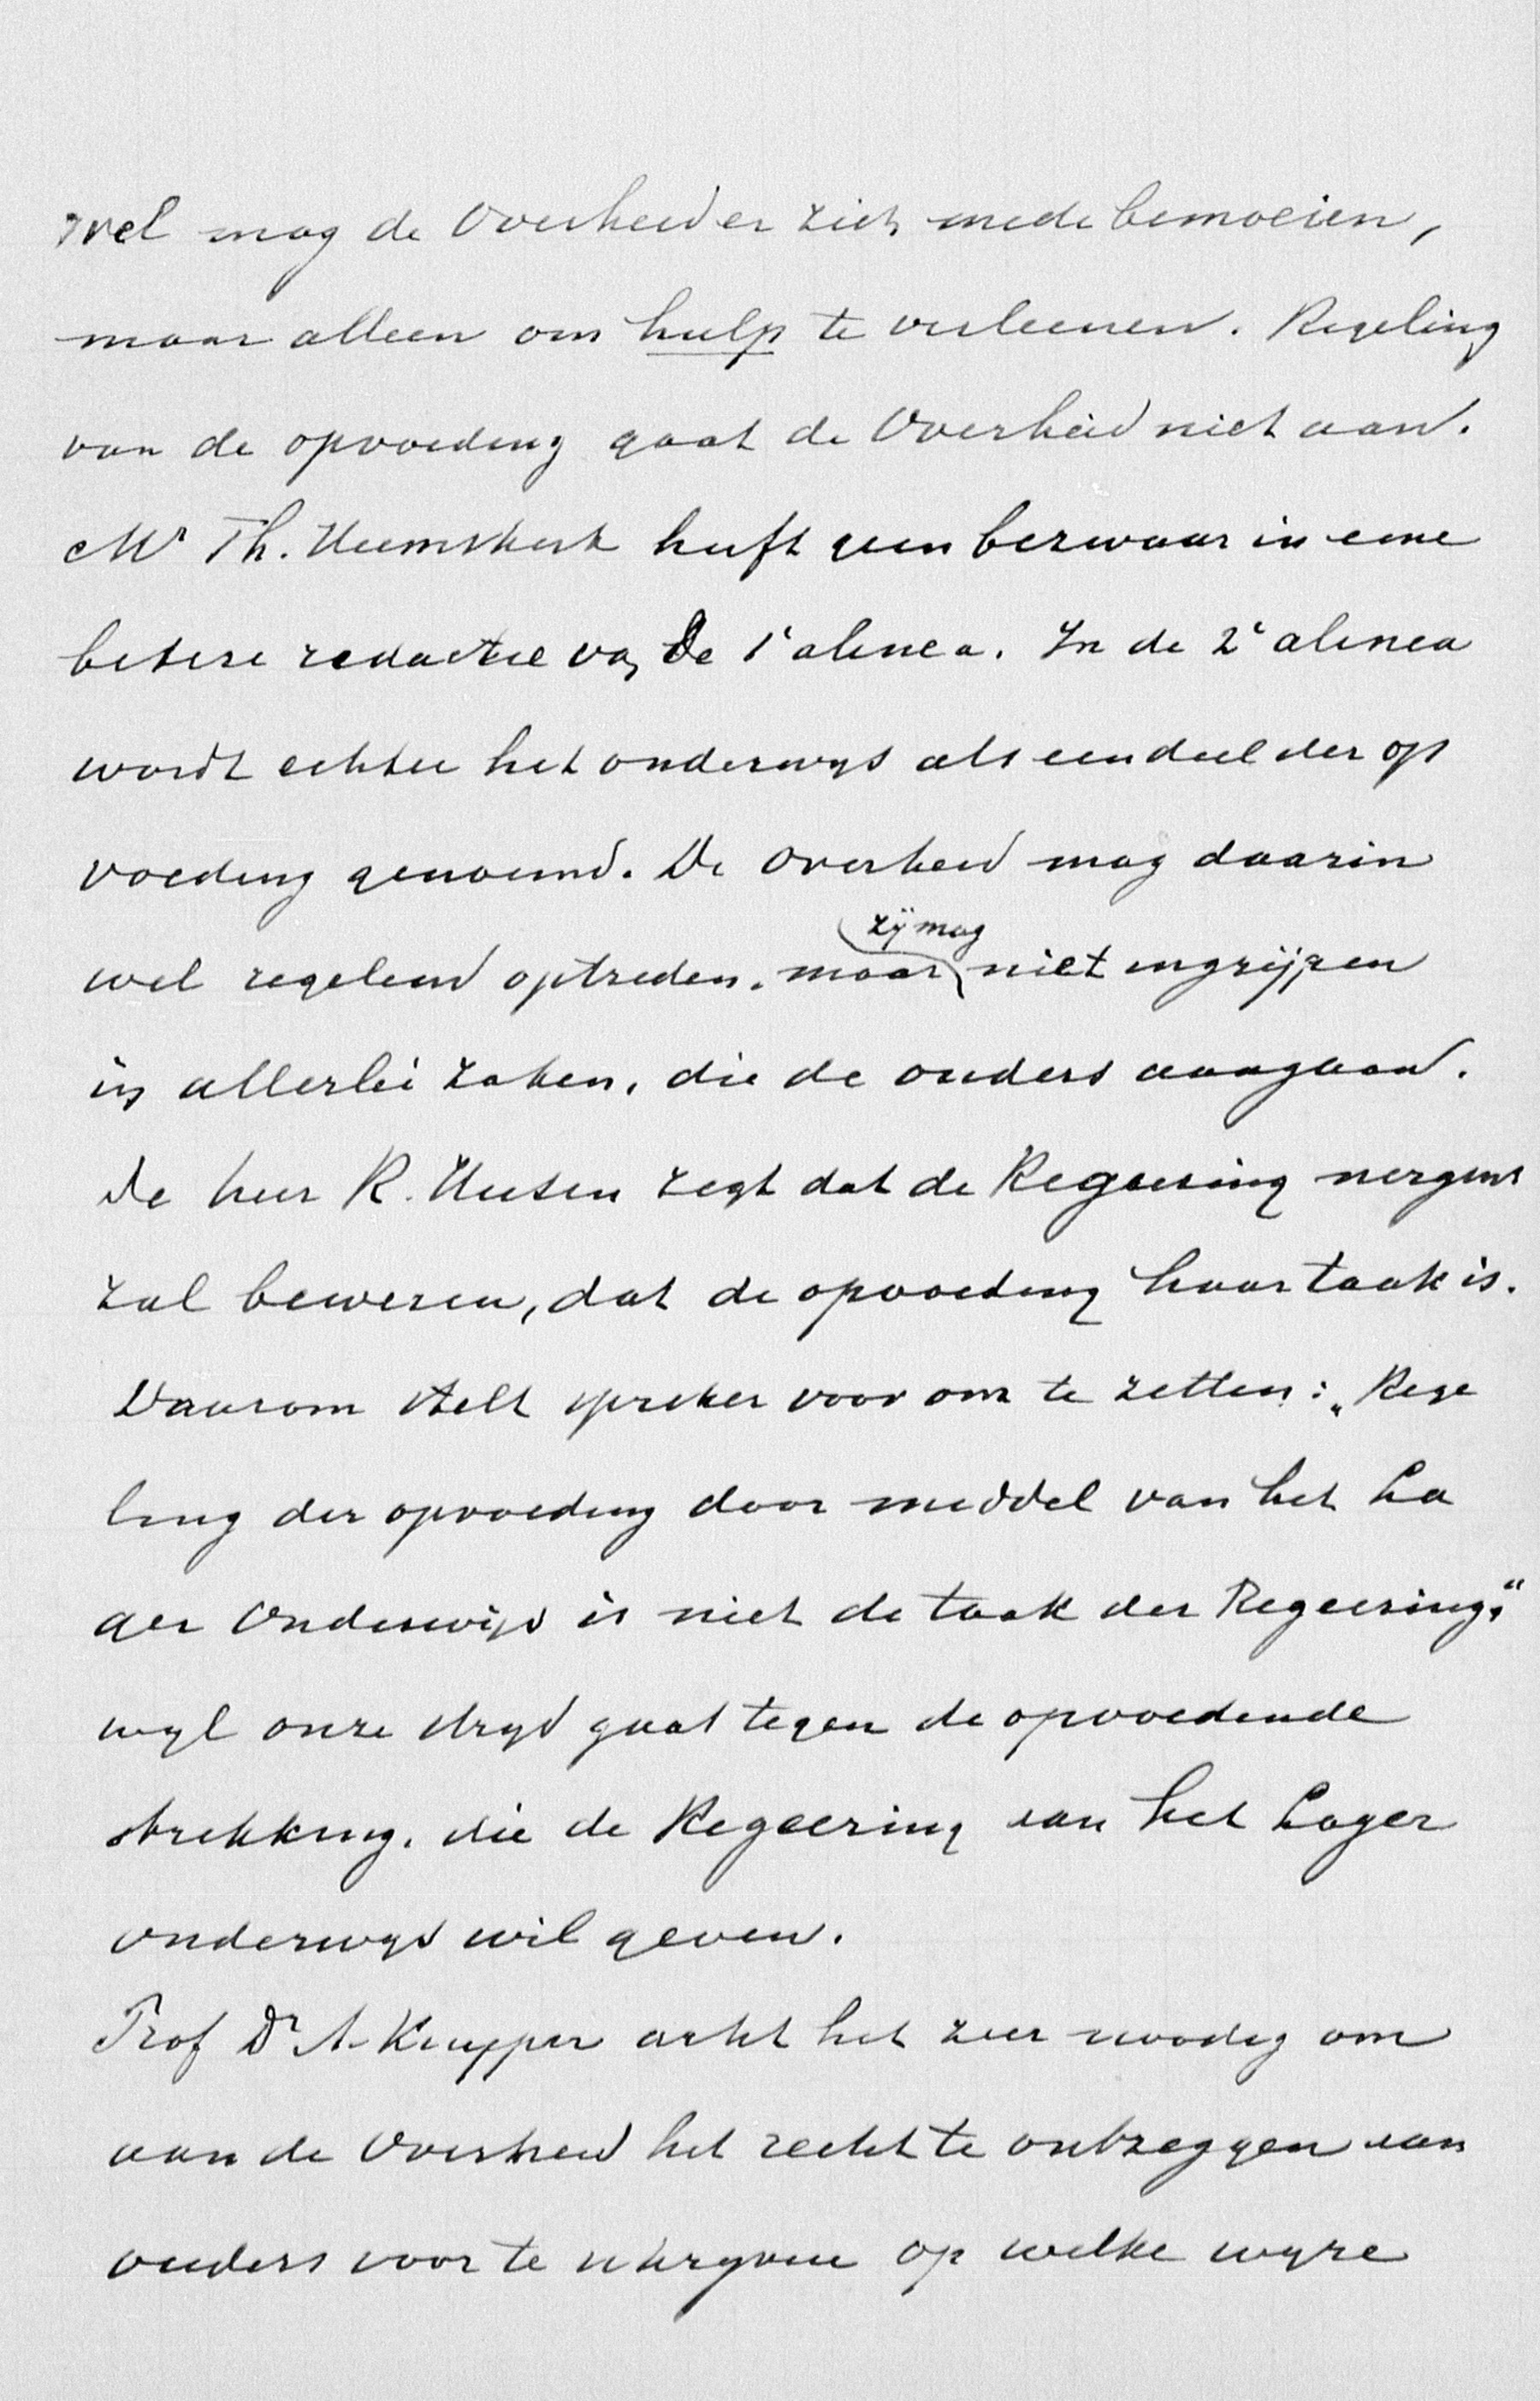 wel mag de Overheid er zich mede bemoeien,
maar alleen om hulp te verleenen. Regeling
van de opvoeding gaat de Overheid niet aan.
Mr Th. Heemskerk heeft geen bezwaar in eene
betere redactie van de 1e alinea. In de 2e alinea
wordt echter het onderwijs als een deel der op
voeding genoemd. De Overheid mag daarin
zij mag
wel regelend optreden, maar niet ingrijpen
in allerlei zaken, die de ouders aangaan.
De heer R. Husen zegt dat de Regeering nergens
zal beweren, dat de opvoeding haar taak is.
Daarom stelt spreker voor om te zetten: „Rege
ling der opvoeding door middel van het La
ger Onderwijs is niet de taak der Regeering,"
wijl onze strijd gaat tegen de opvoedende
strekking, die de Regeering aan het Lager
onderwijs wil geven.
Prof Dr A. Kuyper acht het zeer noodig om
aan de Overheid het recht te ontzeggen aan
ouders voor te schrijven op welke wijze